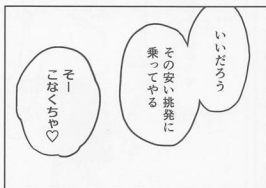 いいだろう
その安い挑発に
乗ってやる
そー
こなくちゃ♡